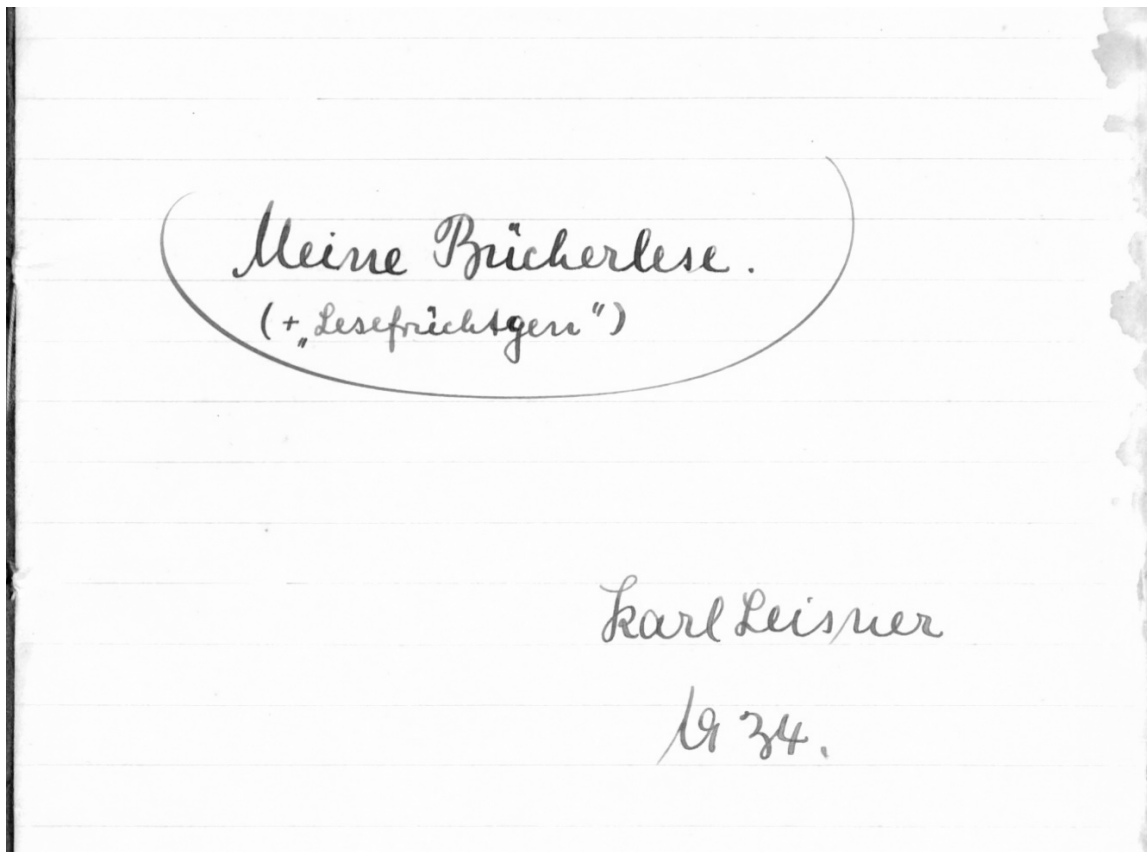 Meine Bücherlese.
(+„Lesefrüchtgen“)
Karl Leisner
1934.